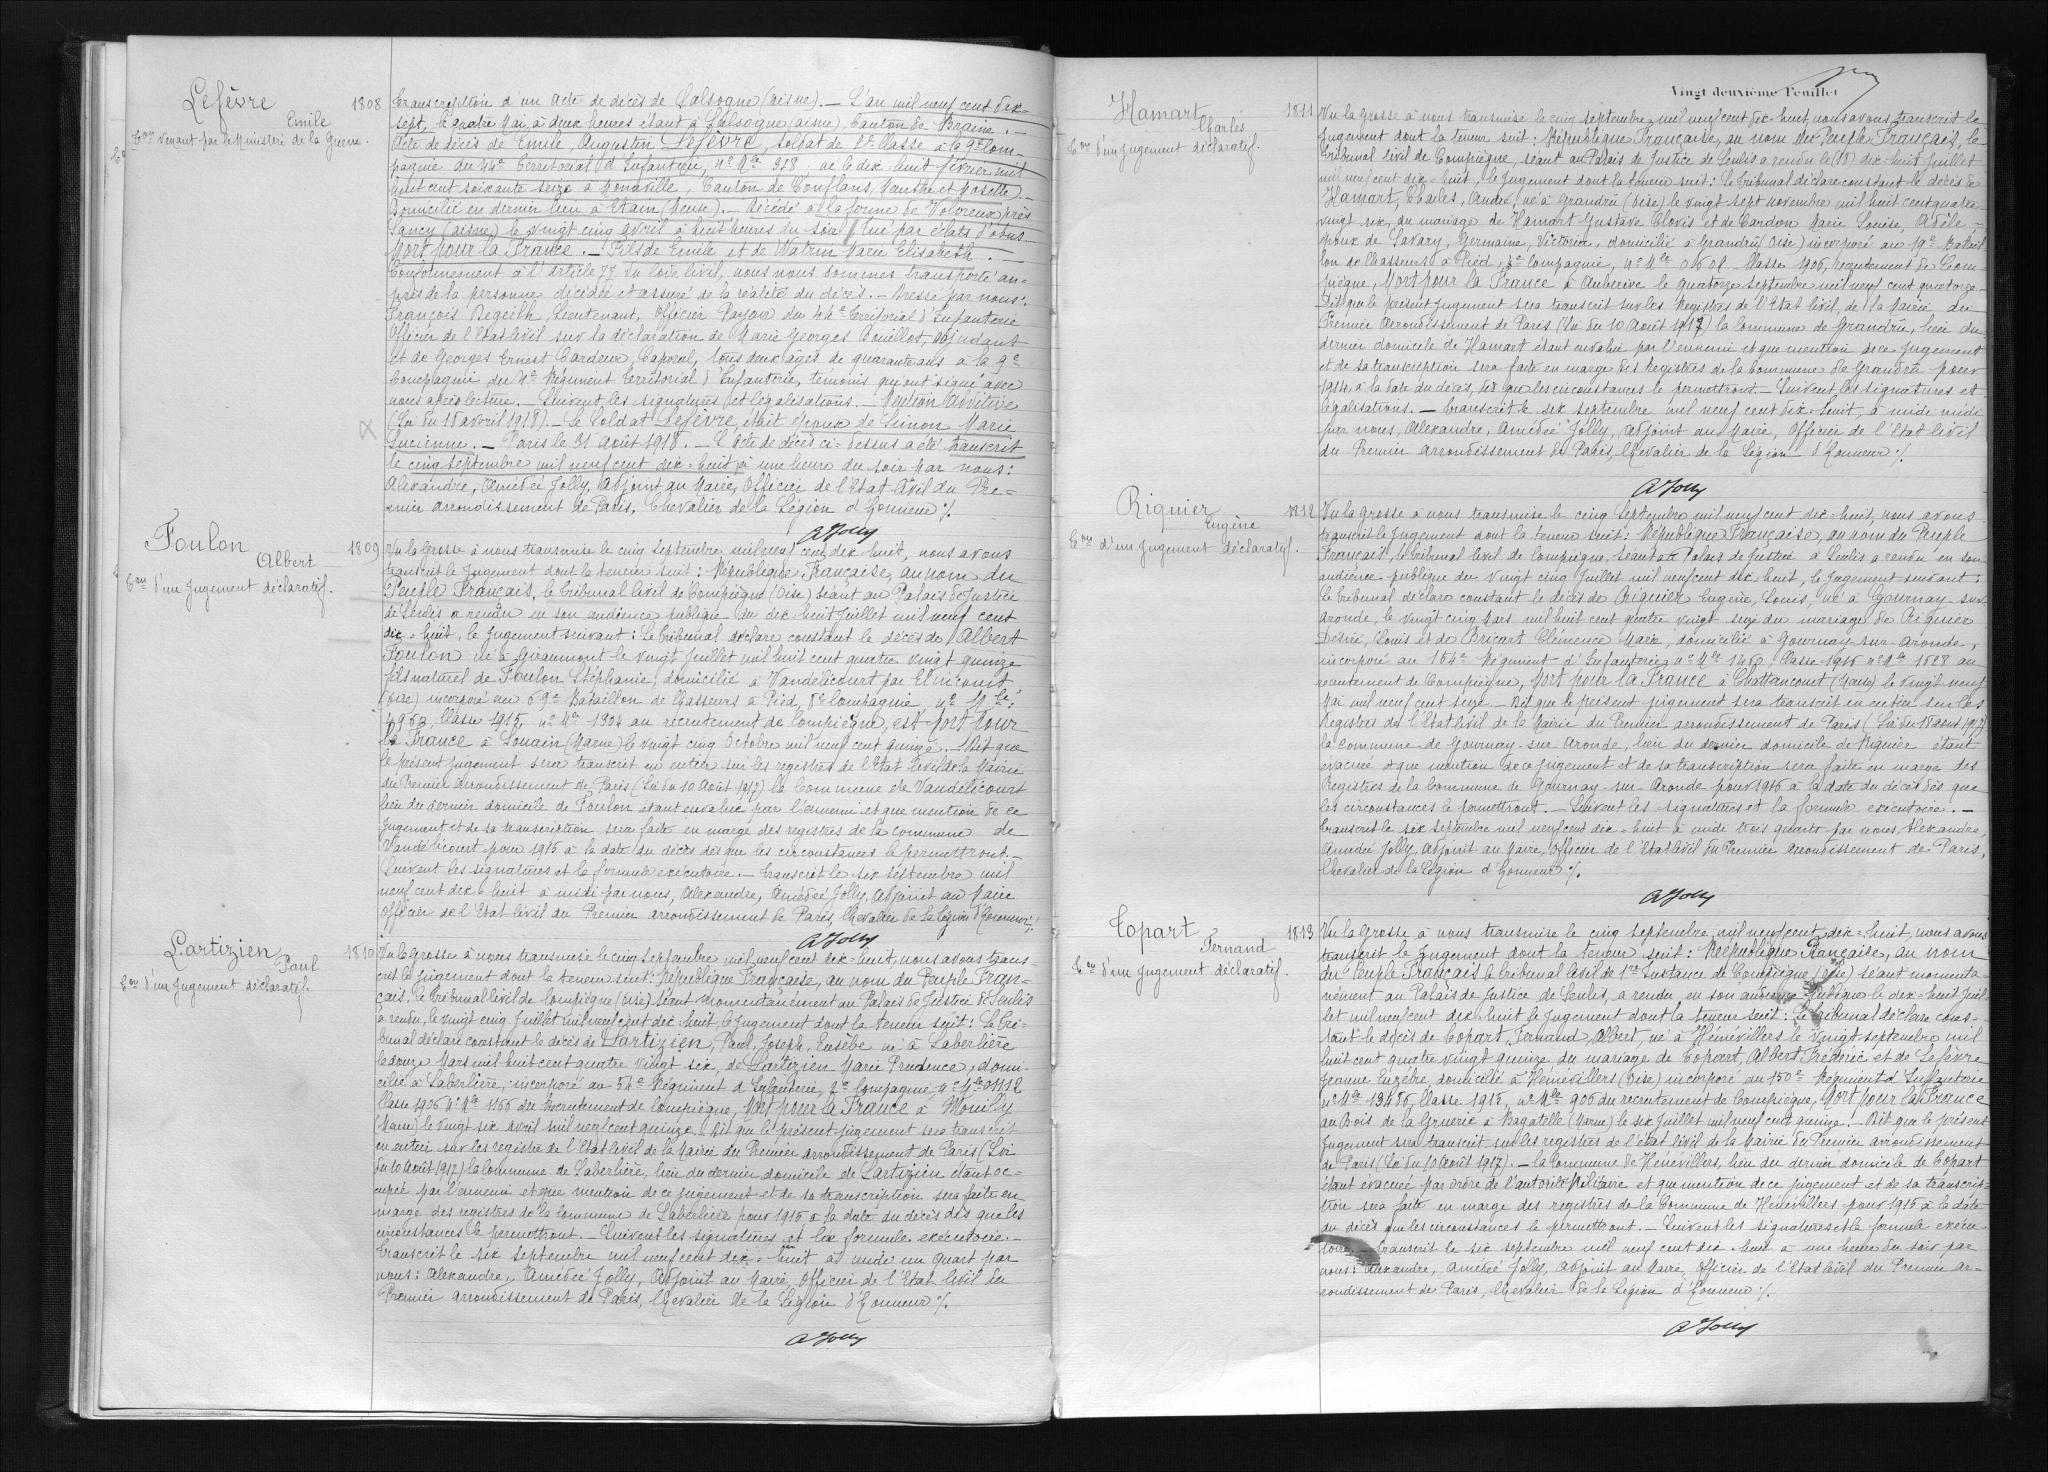 Lefèvre
Emile
Con venant par le Ministère de la Guerre.
1808
Transcription d'un acte de décès de Salsogne (aisne). — L'an mil neuf cent dix-
sept, le quatre Mai, à deux heures étant à Salsogne (aisne), Canton de Braine. —
Acte de décès de Emile, Augustin Lefèvre, soldat de 2e classe à la 9e Com-
pagnie du 44e Territorial d'Infanterie, No Mle 328 né le dix-huit février mil
huit cent soixante seize à Monaville, Canton de Conflans, Meurthe et Moselle). —
Domicilié en dernier lieu à Etain (Meuse). — Décédé à la ferme de Volvreux près
Sancy (aisne) le vingt cinq avril à huit heures du soir. Tué par éclats d'obus.
Mort pour la France. — Fils de Emile et de Watrin Marie Elisabeth. —
Conformément à l'article 77 du Code Civil, nous nous sommes transporté au-
près de la personne décédée et assuré de la réalité du décès. — Dressé par nous:
François Begeith, Lieutenant, Officier Payeur du 44e Territorial d'Infanterie
Officier de l'Etat Civil sur la déclaration de Marie Georges Bouillot, adjudant
et de Georges Ernest Cardeur, Caporal, tous deux agés de quarante ans à la 9e
Compagnie du 4e Régiment Territorial d'Infanterie, témoins qui ont signé avec
nous après lecture. — Suivent les signatures et légalisations. — Mention additive
(Loi du 18 avril 1918). — Le Soldat Lefèvre, était époux de Simon Marie
Lucienne. — Paris le 31 août 1918. — L'acte de décès ci-dessus a été transcrit
le cinq septembre mil neuf cent dix-huit à une heure du soir par nous:
Alexandre, Amédée Jolly, Adjoint au Maire, Officier de l'Etat Civil du Pre-
mier arrondissement de Paris, Chevalier de la Légion d'Honneur %.
AJolly
Foulon
Albert
Con d'un Jugement déclaratif.
1809
Vu la Grosse à nous transmise le cinq septembre mil neuf cent dix huit, nous avons
transcrit le Jugement dont la teneur suit: République Française, au nom du
Peuple Français, le Tribunal Civil de Compiègne (Oise) séant au Palais de Justice
de Senlis a rendu en son audience publique du dix huit Juillet mil neuf cent
dix-huit, le Jugement suivant: Le Tribunal déclare constant le décès de Albert
Foulon né à Giraumont le vingt Juillet mil huit cent quatre vingt quinze
fils naturel de Foulon Stéphanie, domicilié à Vandélicourt par Elincourt
(Oise) incorporé au 69e Bataillon de Chasseurs à Pied, 8e Compagnie, No Mle:
4953, Classe 1915, No Mle 1304 au recrutement de Compiègne, est Mort pour
la France à Souain (Marne) le vingt cinq Octobre mil neuf cent quinze. — Dit que
le présent jugement sera transcrit en entier sur les registres de l'Etat Civil de la Mairie
du Premier arrondissement de Paris (Loi du 10 Août 1917) la Commune de Vandélicourt
lieu du dernier domicile de Foulon étant envahie par l'ennemi et que mention de ce
Jugement et de sa transcription sera faite en marge des registres de la commune de
Vandélicourt pour 1915 à la date du décès dès que les circonstances le permettront. —
Suivent les signatures et la formule exécutoire. — Transcrit le six septembre mil
neuf cent dix-huit à midi par nous, Alexandre, Amédée Jolly, Adjoint au Maire
Officier de l'Etat Civil du Premier arrondissement de Paris, Chevalier de la Légion d'Honneur %.
AJolly
Lartizien
Paul
Con d'un Jugement déclaratif.
1810
Vu la Grosse à nous transmise le cinq septembre mil neuf cent dix-huit, nous avons trans-
crit le Jugement dont la teneur suit: République Française, au nom du Peuple Fran-
çais, le Tribunal Civil de Compiègne (Oise) séant momentanément au Palais de Justice de Senlis
a rendu, le vingt cinq Juillet mil neuf cent dix huit, le Jugement dont la teneur suit: Le Tri-
bunal déclare constant le décès de Lartizien, Paul, Joseph, Eusèbe né à Laberlière
le douze Mars mil huit cent quatre vingt six, de Lartizien Marie Prudence, domi-
cilié à Laberlière, incorporé au 54e Régiment d'Infanterie, 2e Compagnie, No Mle 01112
Classe 1906 No Mle 1166 du Recrutement de Compiègne, Mort pour la France à Mouilly
(Meuse) le vingt six avril mil neuf cent quinze. Dit que le présent jugement sera transcrit
en entier sur les registre de l'Etat Civil de la Mairie du Premier arrondissement de Paris (Loi
du 10 Août 1917) la Commune de Laberlière, lieu du dernier domicile de Lartizien étant oc-
cupée par l'ennemi et que mention de ce jugement et de sa transcription sera faite en
marge des registres de la Commune de Laberlière pour 1915 à la date du décès dès que les
circonstances le permettront. — Suivent les signatures et la formule exécutoire. —
Transcrit le six septembre mil neuf cent dix-huit à midi un quart par
nous: Alexandre, Amédée Jolly, Adjoint au Maire, Officier de l'Etat Civil du
Premier arrondissement de Paris, Chevalier de la Légion d'Honneur %.
AJolly
Vingt deuxième Feuillet
Hamart
Charles
Con d'un Jugement déclaratif.
1811
Vu la Grosse à nous transmise le cinq septembre mil neuf cent dix-huit, nous avons transcrit le
Jugement dont la teneur suit: République Française, au nom du Peuple Français, le
Tribunal Civil de Compiègne, séant au Palais de Justice de Senlis a rendu le (18) dix-huit Juillet
mil neuf cent dix-huit, le Jugement dont la teneur suit: Le Tribunal déclare constant le décès de
Hamart, Charles, André, né à Grandrû (Oise) le vingt sept novembre mil huit cent quatre
vingt six, du mariage de Hamart Gustave Clovis et de Cardon Marie Louise, Adèle —
époux de Savary, Germaine, Victorine, domicilié à Grandrû (Oise) incorporé au 19e Batail-
lon de Chasseurs à Pied, 3e Compagnie, No Mle 01501 Classe 1906, recrutement de Com-
piègne, Mort pour la France à Auberive le quatorze septembre mil neuf cent quatorze —
Dit que le présent Jugement sera transcrit sur les Registres de l'Etat Civil, de la Mairie du
Premier Arrondissement de Paris (Loi du 10 Août 1917) la Commune de Grandrû, lieu du
dernier domicile de Hamart étant envahie par l'ennemi et que mention de ce Jugement
et de sa transcription sera faite en marge des Registres de la Commune de Grandrû pour
1914 à la date du décès, dès que les circonstances le permettront. — Suivent les signatures et
légalisations. — Transcrit le six septembre mil neuf cent dix-huit, à midi
par nous, Alexandre, Amédée Jolly, Adjoint au Maire, Officier de l'Etat Civil
du Premier arrondissement de Paris, Chevalier de la Légion d'Honneur %.
AJolly
Riquier
Eugène
Con d'un Jugement déclaratif.
1812
Vu la Grosse à nous transmise le cinq septembre mil neuf cent dix-huit, nous avons
transcrit le Jugement dont la teneur suit: République Française, au nom du Peuple
Français, le Tribunal Civil de Compiègne, séant au Palais de Justice à Senlis a rendu en son
audience publique du vingt cinq Juillet mil neuf cent dix huit, le Jugement suivant:
Le Tribunal déclare constant le décès de Riquier Eugène, Louis, né à Gournay-sur-
Aronde, le vingt cinq Mars mil huit cent quatre vingt seize du mariage de Riquier
Désiré, Louis et de Bricart Clémence Marie, domicilié à Gournay-sur-Aronde,
incorporé au 154e Régiment d'Infanterie, No Mle 1250, Classe 1916 No Mle 1528 au
recrutement de Compiègne, Mort pour la France à Chattancourt (Meuse) le vingt neuf
Mai mil neuf cent seize. — Dit que le présent jugement sera transcrit en entier sur les
Registres de l'Etat Civil de la Mairie du Premier arrondissement de Paris (Loi du 18 août 1917)
la commune de Gournay-sur-Aronde, lieu du dernier domicile de Riquier étant
évacuée et que mention de ce jugement et de sa transcription sera faite en marge des
Registres de la Commune de Gournay-sur-Aronde pour 1916 à la date du décès dès que
les circonstances le permettront. — Suivent les signatures et la formule exécutoire. —
Transcrit le six septembre mil neuf cent dix-huit à midi trois quarts par nous, Alexandre,
Amédée Jolly, Adjoint au Maire, Officier de l'Etat Civil du Premier arrondissement de Paris,
Chevalier de la Légion d'Honneur %.
AJolly
Copart
Fernand
Con d'un Jugement déclaratif.
1813
Vu la Grosse à nous transmise le cinq septembre mil neuf cent dix-huit, nous avons
transcrit le Jugement dont la teneur suit: République Française, au nom
du Peuple Français le Tribunal Civil de 1re Instance de Compiègne (Oise) séant momenta-
nément au Palais de Justice de Senlis, a rendu en son audience publique le dix-huit Juil-
let mil neuf cent dix-huit le Jugement dont la teneur suit: Le Tribunal déclare cons-
tant le décès de Copart, Fernand, Albert, né à Hénévillers le vingt septembre mil
huit cent quatre vingt quinze du mariage de Copart, Albert Frédéric et de Lefèvre
Jeanne Euzèbe, domicilié à Hénévillers (Oise) incorporé au 150e Régiment d'Infanterie
No Mle 13486, Classe 1915, No Mle 906 du recrutement de Compiègne, Mort pour la France
au Bois de la Gruerie à Bagatelle (Marne) le six Juillet mil neuf cent quinze. — Dit que le présent
Jugement sera transcrit sur les registres de l'état civil de la Mairie du Premier arrondissement
de Paris (Loi du 10 Août 1917). — la Commune de Hénévillers, lieu du dernier domicile de Copart
étant évacuée par ordre de l'autorité Militaire et que mention de ce jugement et de sa transcrip-
tion sera faite en marge des registres de la Commune de Hénévillers pour 1915 à la date
du décès que les circonstances le permettront. — Suivent les signatures et la formule exécu-
toire. — Transcrit le six septembre mil neuf cent dix-huit à une heure du soir par
nous: Alexandre, Amédée Jolly, Adjoint au Maire, Officier de l'Etat Civil du Premier ar-
rondissement de Paris, Chevalier de la Légion d'Honneur %.
AJolly